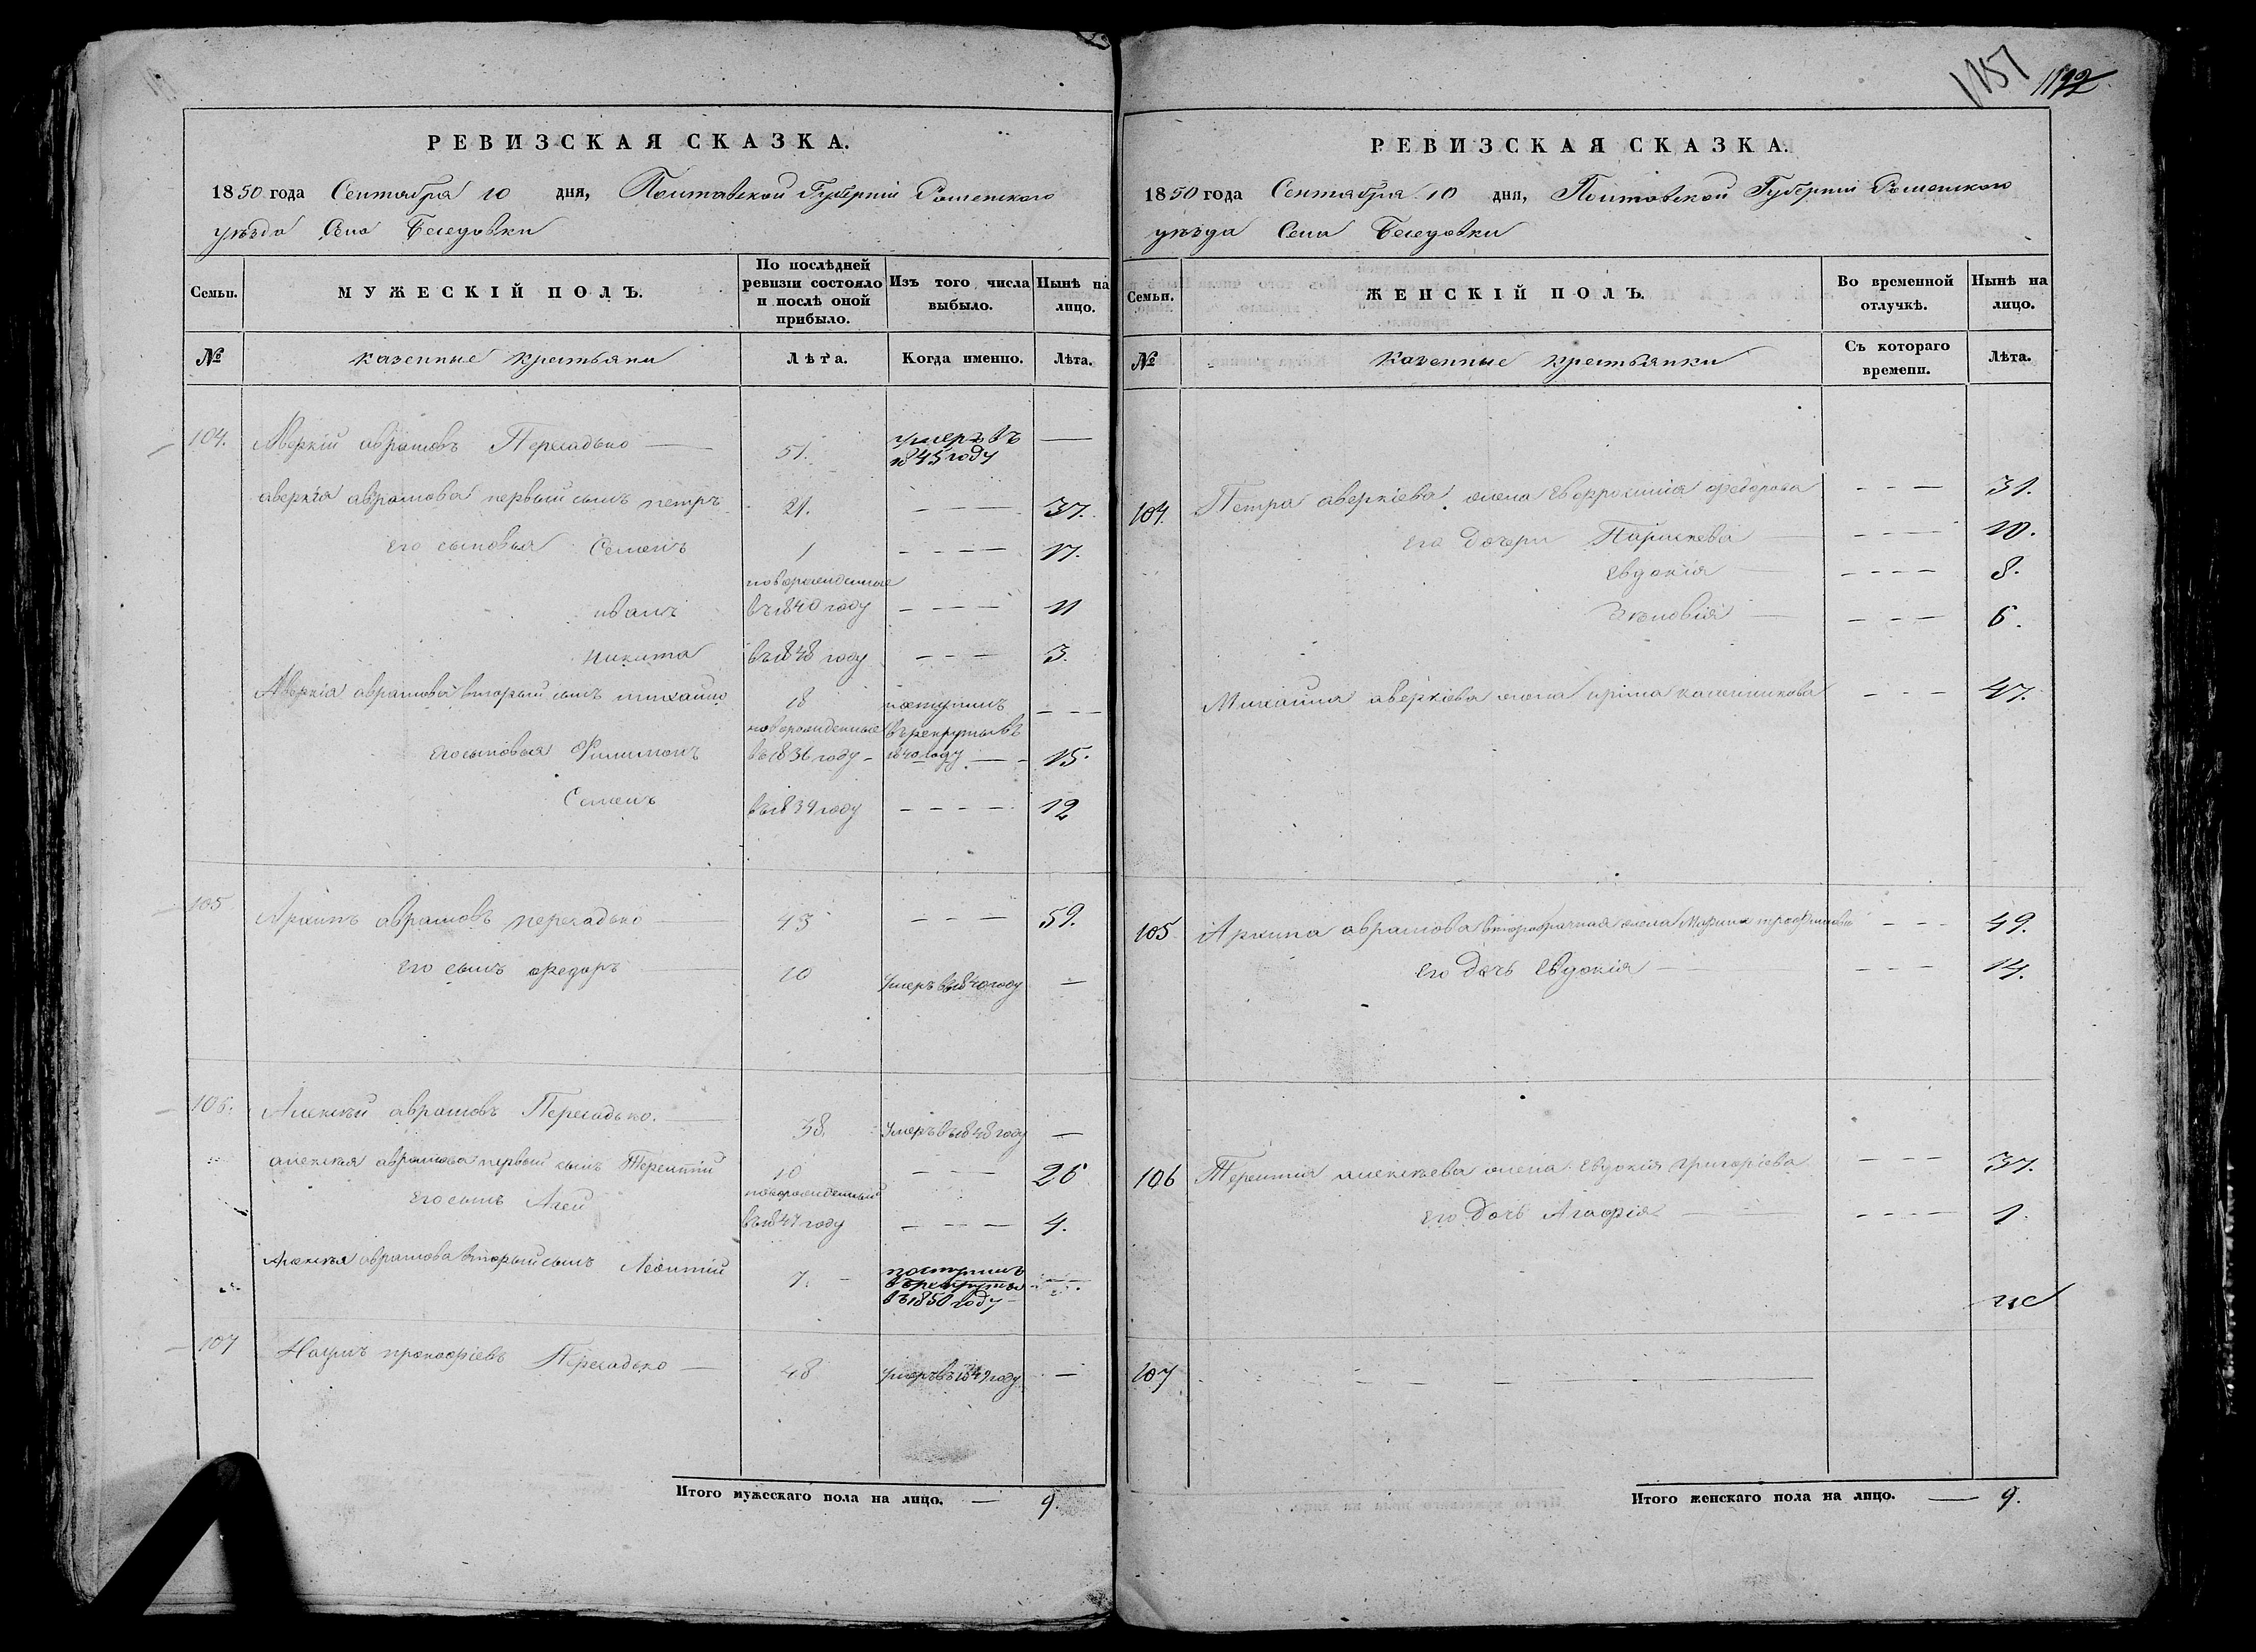 1157 1192
РЕВИЗСКАЯ СКАЗКА.
1850 года Сентября 10 дня, Полтавской Губерніи Роменского
уезда Села Беседовки
Семьи.
МУЖЕСКІЙ ПОЛЪ.
По послѣдней ревизіи состояло и послѣ оной прибыло.
Изъ того числа выбыло.
Нынѣ на лицо.
№ казенные крестьяни Лѣта. Когда именно. Лѣта.
104. Аверкій аврамовъ Перехадько — 51. умеръ въ 1845 году —
аверкія аврамова первый сынъ петръ 21. — — — 37.
его сыновья Семенъ 1 — — — — 17.
новорожденные
иванъ въ 1840 году — — — 11
никита въ 1848 году — — — 3.
Аверкія аврамова вторый сынъ михайло 18 поступилъ в рекруты въ 1840 году — — —
новорожденные
его сыновья Филимонъ въ 1836 году — — — 15.
Семенъ въ 1839 году — — — — 12
105 Архипъ аврамовъ перехадько — 43 — — — 59.
его сынъ федоръ — 10 умеръ въ 1840 году —
106. Алексѣй аврамовъ Перехадько. — 38. умеръ въ 1848 году —
алексѣя аврамова первый сынъ Терентій 10 — — 26
новорожденный
его сынъ Агей въ 1847 году — — — 4.
Алексѣя аврамова вторый сынъ Леонтій 7. — поступилъ в рекруты въ 1850 году — — —
107 Наумъ прокофіевъ Перехадько — 48 умеръ въ 1849 году —
Итого мужескаго пола на лицо. — 9.
РЕВИЗСКАЯ СКАЗКА.
1850 года Сентября 10 дня, Полтавской Губерніи Роменского
уезда Села Беседовки
Семьи.
ЖЕНСКІЙ ПОЛЪ.
Во временной отлучкѣ.
Нынѣ на лицо.
№ Казенные крестьянки Съ котораго времени. Лѣта.
104. Петра аверкіева жена Евфросинія федорова — — — 31.
его дочери Параскева — — — — 10.
Евдокія — — — — — 8.
— — — — 6.
Михайла аверкіева жена ирина калиникова — — — 47.
105 Архипа аврамова второбрачная жена Марина трофимова — — — 49.
его дочь Евдокія — — — — 14.
106 Терентія алексѣева жена Евдокія григоріева — — — 37.
его дочь Агафія — — — — — 1.
107 — — —
Итого женскаго пола на лицо. — 9.